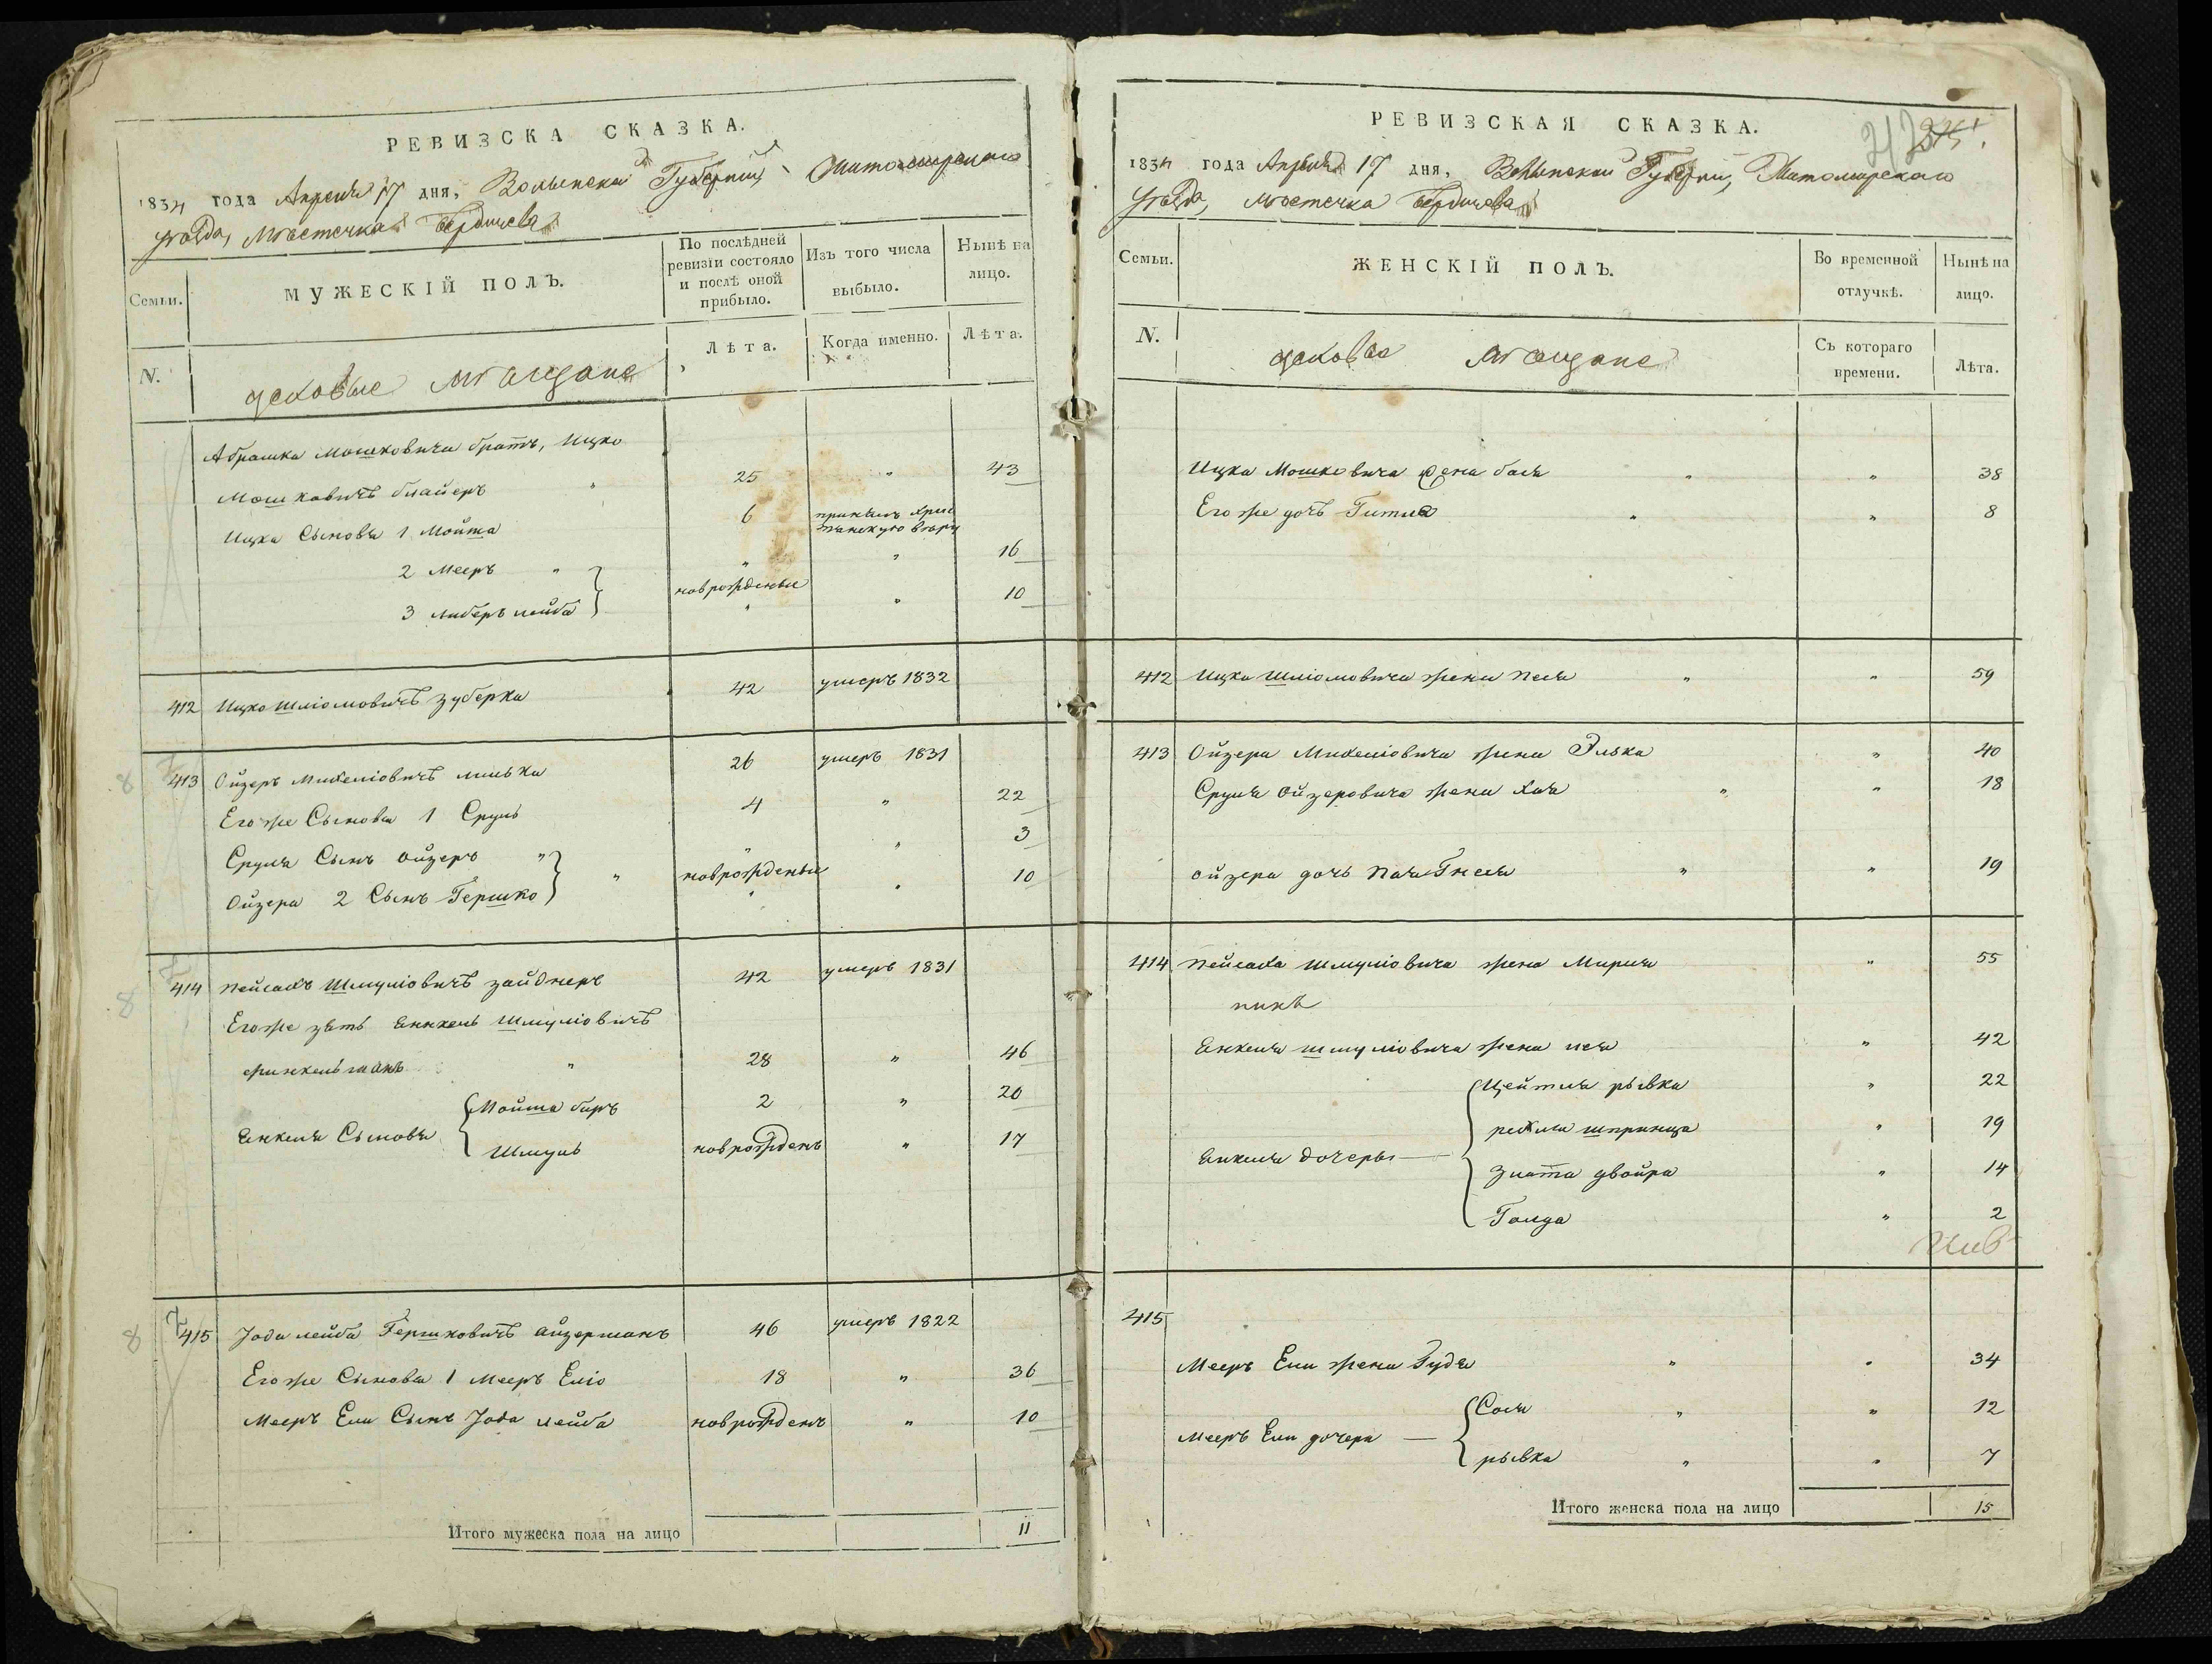 РЕВИЗСКА СКАЗКА.
1834 года Апреля 17 дня, Волынской Губернии, Житомирского
уѣзда, мѣстечка Бердичева
Семьи.
МУЖЕСКІЙ ПОЛЪ.
По послѣдней ревизіи состояло и послѣ оной прибыло.
Изъ того числа выбыло.
Нынѣ на лицо.
N.
цеховые мѣщане
Лѣта.
Когда именно.
Лѣта.
Абрашка Мошковича братъ, Ицко
Мошковичъ блаЙеръ " 25 " 43
Ицка Сыновья 1 Мойша 6 принялъ Хрис
тьянскую вѣру
2 Мееръ " " " 16
новрожденые
3 либеръ лейба " " 10
412 Ицко Шліомовичъ зуберка 42 умеръ 1832
413 Ойзеръ Михеліовичъ милька 26 умеръ 1831
Егоже Сыновья 1 Сруль 4 " 22
Сруля Сынъ Ойзеръ " " " 3
новрожденые
Ойзера 2 Сынъ Гершко " " " 10
414 Пейсахъ Шмуліовичъ зайднеръ 42 умеръ 1831
Егоже зять Янкель Шмуліовичъ
финкельманъ " 28 " 46
Янкеля Сыновья Мойша беръ 2 " 20
Шмуль новрожденъ " 17
415 Іода лейба Гершковичъ айзерманъ 46 умеръ 1822
Егоже Сыновья 1 Мееръ Еліо 18 " 36
Мееръ Ели Сынъ Іода лейба новрожденъ " 10
Итого мужеска пола на лицо 11
РЕВИЗСКАЯ СКАЗКА.
212
1834 года Апреля 17 дня, Волынской Губернии, Житомирского
уѣзда, мѣстечка Бердичева
Семьи.
ЖЕНСКІЙ ПОЛЪ.
Во временной отлучкѣ.
Нынѣ на лицо.
N.
цеховые мѣщане
Съ котораго времени.
Лѣта.
Ицка Мошковича жена бася " " 38
Егоже дочь Гитля " " 8
412 Ицка Шліомовича жена песя " " 59
413 Ойзера Михеліовича жена Элька " 40
Сруля Ойзеровича жена хая " " 18
Ойзера дочь Пая Гнеся " " 19
414 Пейсаха Шмуліовича жена Мириля " 55
Янкеля шмуліовича жена лея " 42
Янкеля дочеры Цейтля рывка " 22
рехля шпринца " 19
Злота двойра " 14
Голда " 2
415
Мееръ Ели жена Гудя " " 34
Мееръ Ели дочери Сося " " 12
рывка " " 7
Итого женска пола на лицо 15